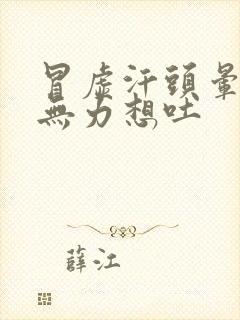 冒虛汗頭暈
無力想吐
薛江